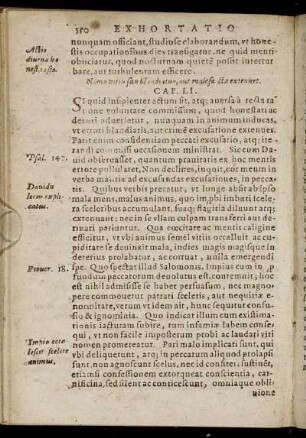 150 EXHORTATIO
nunquam officiant, studiose elaborandum, vt hone
stis occupationibus dies transigatur. ne quid menti
obiiciatur, quod nocturnam quietē possit intertur
bare, aut turbulentam efficere.
CAP. LI.
SI quid insipienter actum sit, atq; auersa à recta ra
tione voluntate commissum, quod honestati ac
decori aduersetur, nunquam in animum inducas,
vt errori blandiaris, aut crimē excusatione extenues.
Parit enim confidentiam peccati excusatio, atq; ite
randi commissi occasionem ministrat. Sic cum Dauid
obseruasset, quantum prauitatis ex hoc mentis
errore pullularet, Non declines, inquit, cor meum in
verba malitiæ ad excusandas excusationes, in pecca
tis. Quibus verbis precatur, vt longe absit ab ipso
mala mens, malus animus, quo impbi imbuti scelera
sceleribus accumulant, suaq; flagitia diluunt atq;
extenuant: nec in se vllam culpam transferri aut de
riuari petiuntur. Qua cœcitate ac mentis caligine
efficitur, vt vbi animus semel vitiis occalluit ac
cupiditate se deuinxit mala, indies magis magisque in
deterius prolabatur, ac corruat, nulla emergendi
spe. Quo spectat illud Salomonis. Impius cum in
profundum peccatorum deuolutus est, contemnit, hoc
est nihil admisisse se habet persuasum, nec magnopere
commouetur patrati sceleris, aut neq; mutatio
exoneratur, verum vt idem ait, hunc sequitur confusio
& ignominia. Quo indicat illum cum existimationis
iactura subire, tum infamiæ labem consequi,
vt non facile impostorum probi ac laudati viri
nomen promereatur. Pari malo implicati sunt, qui
vbi deliquerunt, atq; in peccatum aliquod prolapsi
sunt, non agnoscunt scelus, nec id confiteri sustinēt,
etiamsi confessionem extorqueat conscientia, car
nificina, sed silent ac conticescunt, omniaque obli
uione
Actio
diurna ho
nesta sit.
Psal. 140.
Dauidis
locus expli
catus.
Prouer. 18.
Impio occa
lescit scelere
animus,